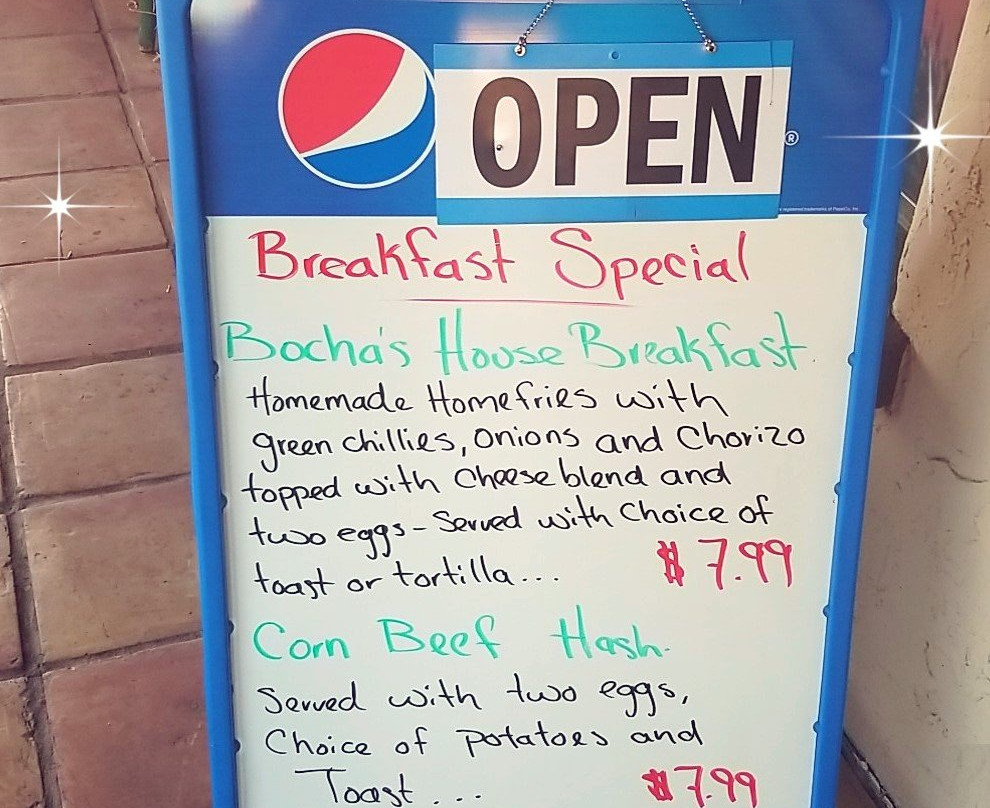 OPEN
®
Breakfast Special
Bocha's House Breakfast
Homemade Homefries with
green chillies, onions and Chorizo
topped with Cheese blend and
two eggs - Served with Choice of
toast or tortilla... $7.99
Corn Beef Hash.
Served with two eggs,
Choice of potatoes and
Toast... $7.99